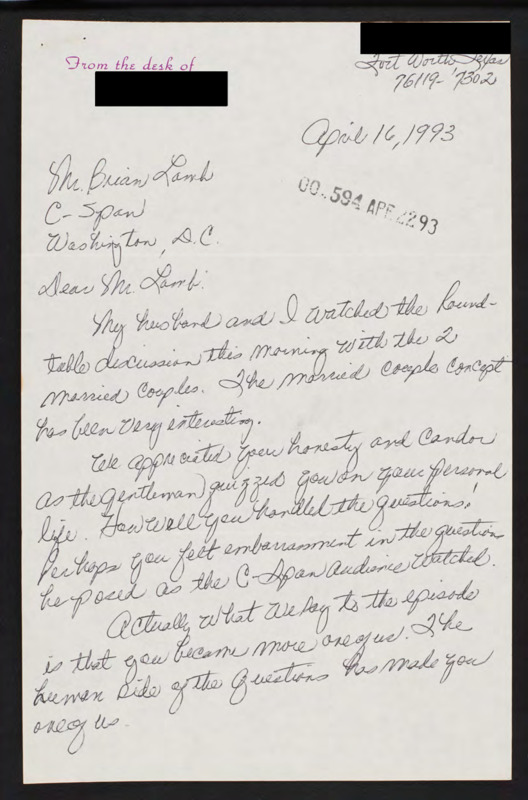 From the desk of
Fort Worth Texas
76119-7302
April 16, 1993
Mr. Brian Lamb
C-Span
Washington, D.C.
00.594 APR 22 93
Dear Mr. Lamb:
My husband and I watched the Round-
table discussion this morning with the 2
married couples. The married couples concept
has been very interesting.
We appreciated your honesty and candor
as the gentleman quizzed you on your personal
life. How well you handled the questions!
Perhaps you felt embarrassment in the question
he posed as the C-Span audience watched.
Actually what we say to the episode
is that you became more one of us. The
human side of the questions has made you
one of us.